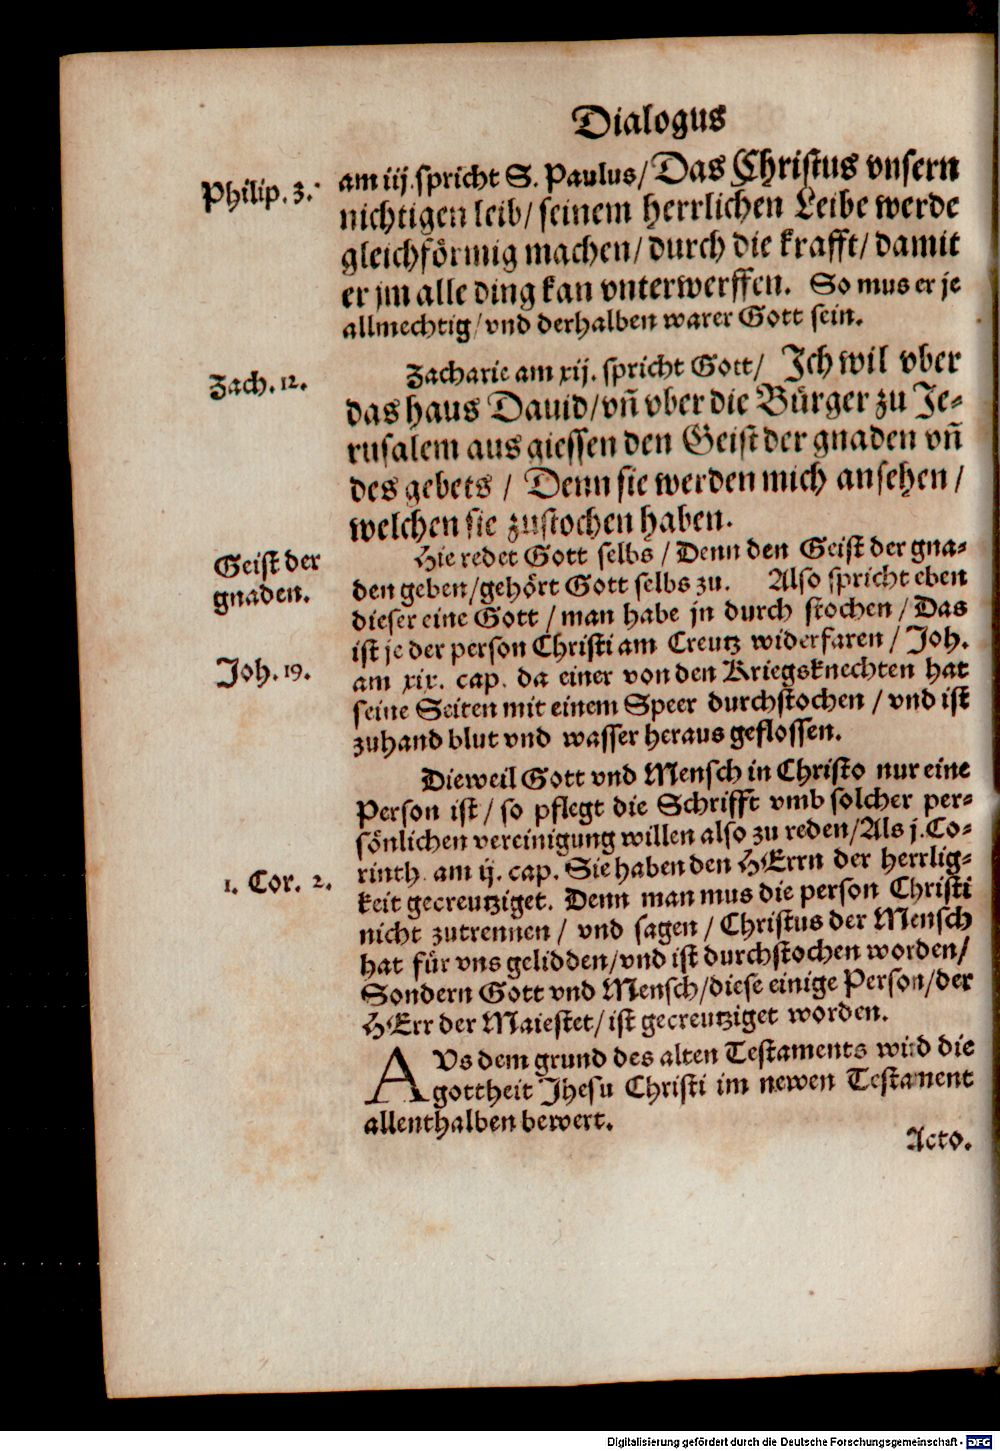 Dialogus
Philip. 3.
am iij. spricht S. Paulus/ Das Christus vnsern
nichtigen leib/ seinem herrlichen Leibe werde
gleichförmig machen/ durch die krafft/ damit
er jm alle ding kan vnterwerffen. So mus er je
allmechtig/ vnd derhalben warer Gott sein.
Zach. 12.
Zacharie am xij. spricht Gott/ Ich wil vber
das haus Dauid/ vñ vber die Bürger zu Je-
rusalem aus giessen den Geist der gnaden vñ
des gebets / Denn sie werden mich ansehen /
welchen sie zustochen haben.
Geist der
gnaden.
Hie redet Gott selbs / Denn den Geist der gna-
den geben/ gehört Gott selbs zu. Also spricht eben
dieser eine Gott / man habe jn durch stochen / Das
ist je der person Christi am Creutz widerfaren / Joh.
Joh. 19.
am xix. cap. da einer von den Kriegsknechten hat
seine Seiten mit einem Speer durchstochen / vnd ist
zuhand blut vnd wasser heraus geflossen.
Dieweil Gott vnd Mensch in Christo nur eine
Person ist / so pflegt die Schrifft vmb solcher per-
sönlichen vereinigung willen also zu reden/ Als j. Co-
1. Cor. 2.
rinth. am ij. cap. Sie haben den HErrn der herrlig-
keit gecreutziget. Denn man mus die person Christi
nicht zutrennen / vnd sagen / Christus der Mensch
hat für vns gelidden/ vnd ist durchstochen worden/
Sondern Gott vnd Mensch/ diese einige Person/ der
HErr der Maiestet/ ist gecreutziget worden.
AVs dem grund des alten Testaments wird die
gottheit Jhesu Christi im newen Testament
allenthalben bewert.
Acto.
Digitalisierung gefördert durch die Deutsche Forschungsgemeinschaft - DFG